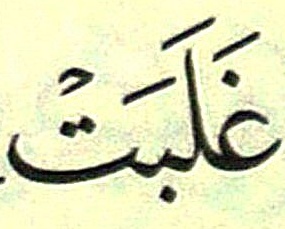 غَلَبَتْ